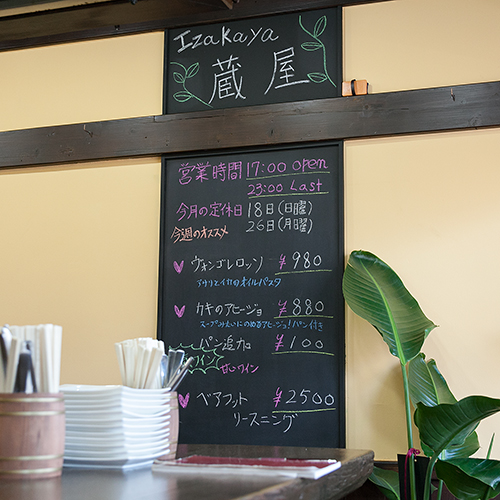 Izakaya
蔵屋
営業時間 17:00 open
23:00 Last
今月の定休日 18日(日曜)
26日(月曜)
今週のオススメ
ヴォンゴレロッソ ¥980
アサリとイカのオイルパスタ
カキのアヒージョ ¥880
スープみたいにのめるアヒージョ!パン付き
パン追加 ¥100
ワイン
甘いワイン
ベアフット ¥2500
リースニング